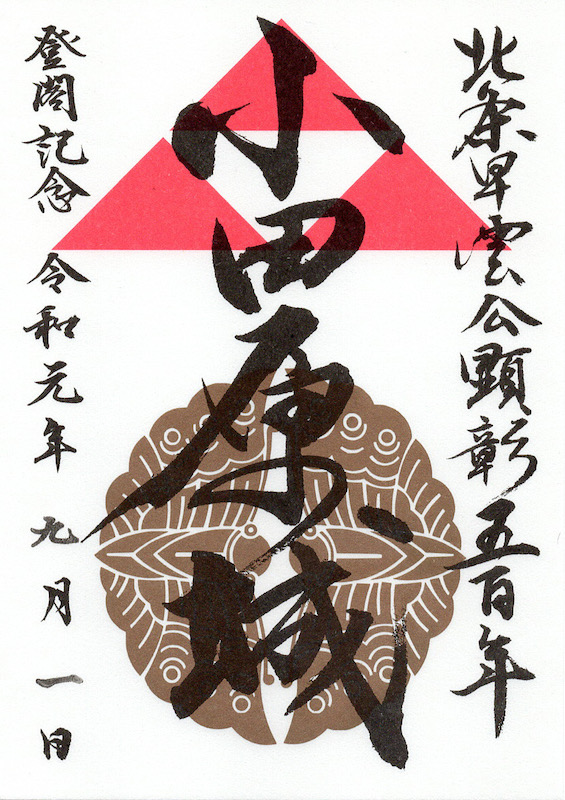 北条早雲公顕彰五百年
小田原城
登閣記念 令和元年 九月一日